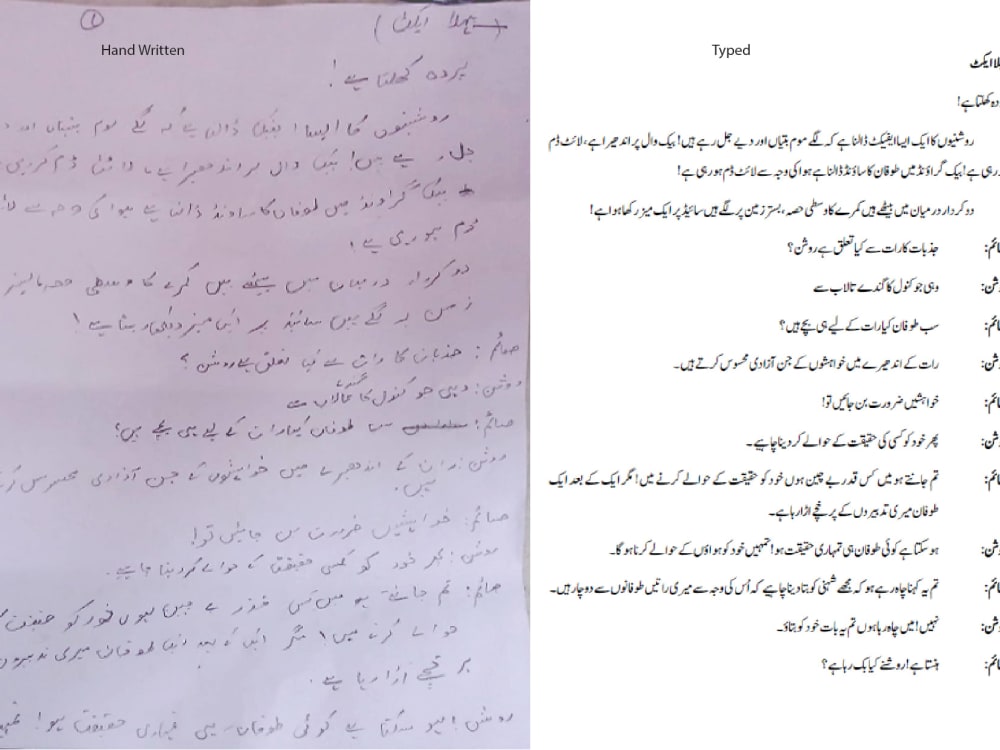 Hand Written
(پہلا ایکٹ)
①
پردہ کھلتا ہے!
روشنیوں کا ایسا ایفیکٹ ڈالنا ہے کہ لگے موم بتیاں اور
جل رہے ہیں! بیک وال پر اندھیرا ہے، لائٹ ڈم کررہی
بیک گراونڈ میں طوفان کا ساونڈ ڈالنا ہے ہوا کی وجہ سے
ڈم ہو رہی ہے!
دو کردار درمیان میں بیٹھے ہیں کمرے کا وسطی حصہ
زمین پر لگے ہیں سائیڈ پر ایک میز
صائم: جذبات کا رات سے کیا تعلق ہے روشن؟
روشن: وہی جو کنول کا گندے تالاب سے
صائم: سب طوفان کیا رات کے لیے ہی بچے ہیں؟
روشن: رات کے اندھیرے میں خواہشوں کے جن آزادی محسوس
ہیں۔
صائم: خواہشیں ضرورت بن جائیں تو!
روشن: پھر خود کو کسی حقیقت کے حوالے کر دینا چاہیے۔
صائم: تم جانتے ہو میں کس قدر بے چین ہوں خود کو حقیقت
حوالے کرنے میں! مگر ایک کے بعد ایک طوفان میری تدبیروں
پرخچے اڑا رہا ہے۔
روشن: ہو سکتا ہے کوئی طوفان ہی تمہاری حقیقت ہو!
Typed
لا ایکٹ
دہ کھلتا ہے!
روشنیوں کا ایک ایسا ایفیکٹ ڈالنا ہے کہ لگے موم بتیاں اور دیے جل رہے ہیں! بیک وال پر اندھیرا ہے، لائٹ ڈم
ر رہی ہے! بیک گراؤنڈ میں طوفان کا ساؤنڈ ڈالنا ہے ہوا کی وجہ سے لائٹ ڈم ہو رہی ہے!
دو کردار درمیان میں بیٹھے ہیں کمرے کا وسطی حصہ، بستر زمین پر لگے ہیں سائیڈ پر ایک میز رکھا ہوا ہے!
ائم: جذبات کا رات سے کیا تعلق ہے روشن؟
وشن: وہی جو کنول کا گندے تالاب سے
ائم: سب طوفان کیا رات کے لیے ہی بچے ہیں؟
وشن: رات کے اندھیرے میں خواہشوں کے جن آزادی محسوس کرتے ہیں۔
ائم: خواہشیں ضرورت بن جائیں تو!
وشن: پھر خود کو کسی کی حقیقت کے حوالے کر دینا چاہیے۔
ائم: تم جانتے ہو میں کس قدر بے چین ہوں خود کو حقیقت کے حوالے کرنے میں! مگر ایک کے بعد ایک
طوفان میری تدبیروں کے پرخچے اڑا رہا ہے۔
وشن: ہو سکتا ہے کوئی طوفان ہی تمہاری حقیقت ہو! تمہیں خود کو ہواؤں کے حوالے کرنا ہو گا۔
ائم: تم یہ کہنا چاہ رہے ہو کہ مجھے شہنی کو بتا دینا چاہیے کہ اُس کی وجہ سے میری راتیں طوفانوں سے دوچار ہیں۔
وشن: نہیں! میں چاہ رہا ہوں تم یہ بات خود کو بتاؤ۔
ائم: ہنستا ہے! روشنے کیا بک رہا ہے؟